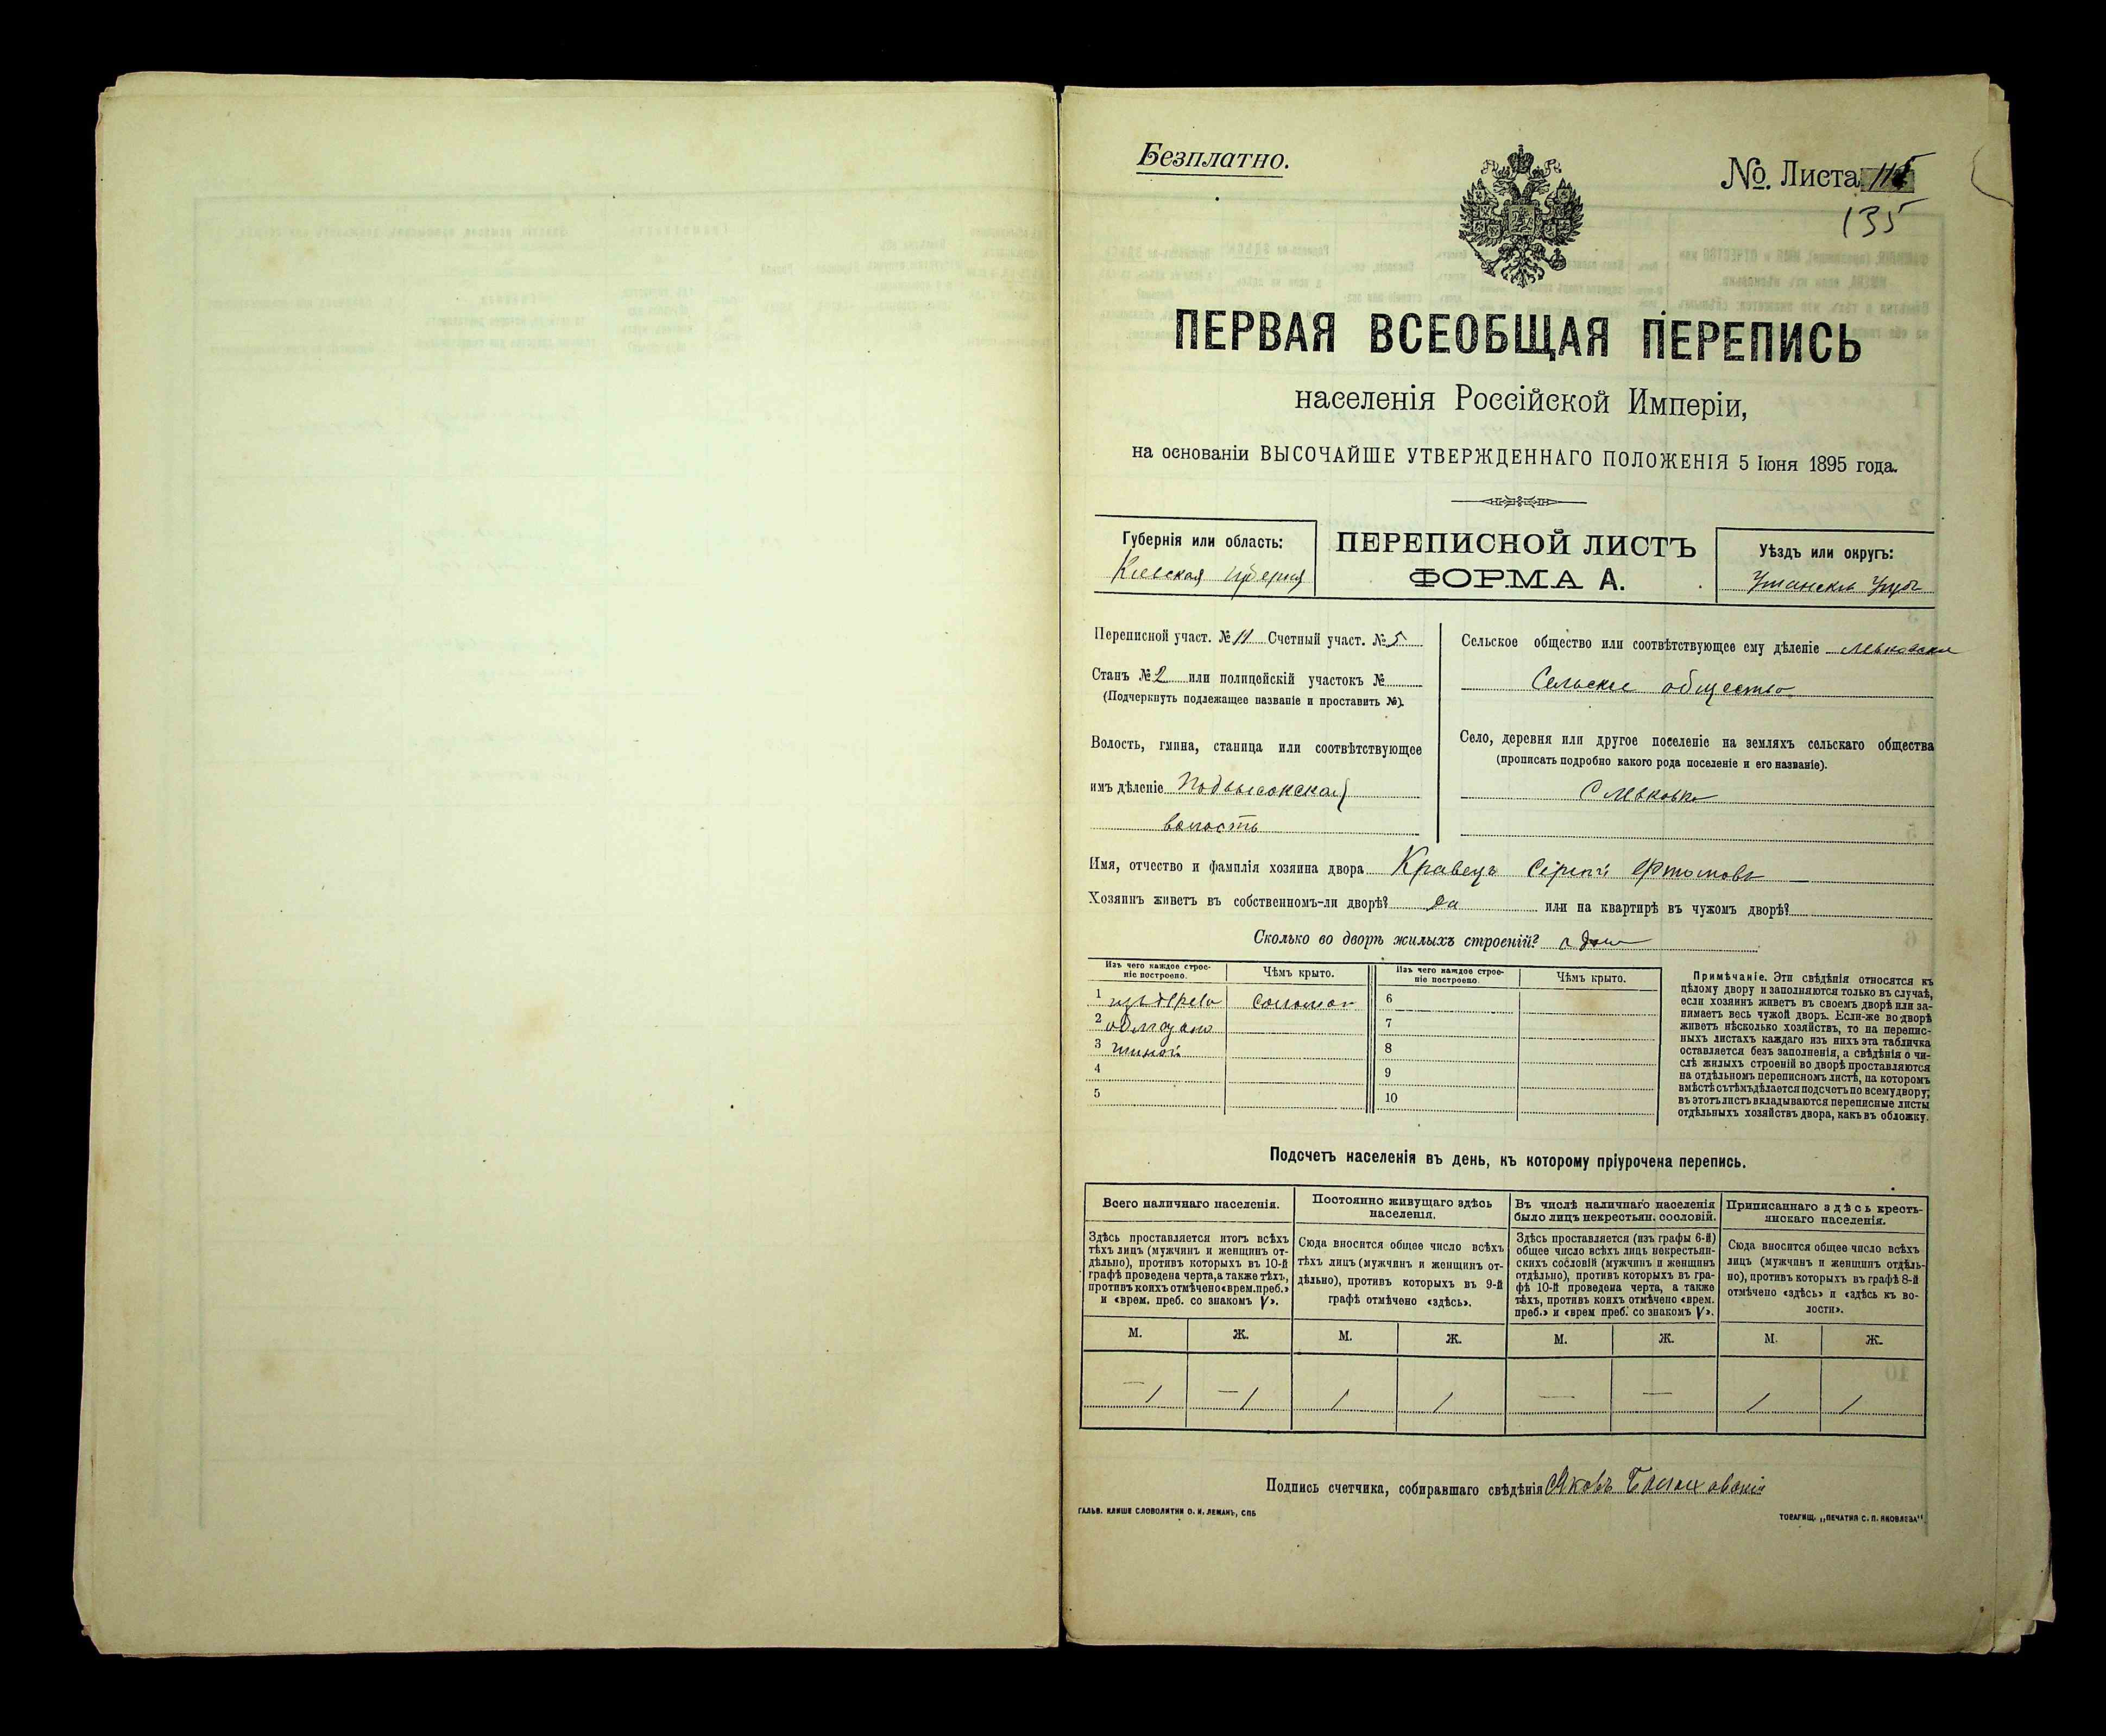 Безплатно.
№. Листа 115
135
ПЕРВАЯ ВСЕОБЩАЯ ПЕРЕПИСЬ
населенія Россійской Имперіи,
на основаніи ВЫСОЧАЙШЕ УТВЕРЖДЕННАГО ПОЛОЖЕНІЯ 5 Іюня 1895 года.
Губернія или область:
Кіевская губерния
ПЕРЕПИСНОЙ ЛИСТЪ
ФОРМА А.
Уѣздъ или округъ:
Уманскій Уѣздъ
Переписной участ. № 11 Счетный участ. № 5
Станъ № 2 или полицейскій участокъ №
(Подчеркнуть подлежащее названіе и проставить №).
Волость, гмина, станица или соотвѣтствующее
имъ дѣленіе Подвысокская
волость
Сельское общество или соотвѣтствующее ему дѣленіе Левковское
Сельское общество
Село, деревня или другое поселеніе на земляхъ сельскаго общества
(прописать подробно какого рода поселеніе и его названіе).
С Левковка
Имя, отчество и фамилія хозяина двора Кравецъ Сергій
Хозяинъ живетъ въ собственномъ-ли дворѣ? Да или на квартирѣ въ чужомъ дворѣ?
Сколько во дворѣ жилыхъ строеній? один
Изъ чего каждое строе-
ніе построено.
Чѣмъ крыто.
Изъ чего каждое строе-
ніе построено.
Чѣмъ крыто.
1 изъ дерева соломой
2 обмазано
3 глиной
4
5
6
7
8
9
10
Примѣчаніе. Эти свѣдѣнія относятся къ
цѣлому двору и заполняются только въ случаѣ,
если хозяинъ живетъ въ своемъ дворѣ или за-
нимаетъ весь чужой дворъ. Если-же во дворѣ
живетъ нѣсколько хозяйствъ, то на перепис-
ныхъ листахъ каждаго изъ нихъ эта табличка
оставляется безъ заполненія, а свѣдѣнія о чи-
слѣ жилыхъ строеній во дворѣ проставляются
на отдѣльномъ переписномъ листѣ, на которомъ
вмѣстѣ съ тѣмъ дѣлается подсчетъ по всему двору;
въ этотъ листъ вкладываются переписные листы
отдѣльныхъ хозяйствъ двора, какъ въ обложку.
Подсчетъ населенія въ день, къ которому пріурочена перепись.
Всего наличнаго населенія.
Здѣсь проставляется итогъ всѣхъ
тѣхъ лицъ (мужчинъ и женщинъ от-
дѣльно), противъ которыхъ въ 10-й
графѣ проведена черта, а также тѣхъ,
противъ коихъ отмѣчено «врем. преб.»
и «врем. преб. со знакомъ V».
Постоянно живущаго здѣсь
населенія.
Сюда вносится общее число всѣхъ
тѣхъ лицъ (мужчинъ и женщинъ от-
дѣльно), противъ которыхъ въ 9-й
графѣ отмѣчено «здѣсь».
Въ числѣ наличнаго населенія
было лицъ некрестьян. сословій.
Здѣсь проставляется (изъ графы 6-й)
общее число всѣхъ лицъ некрестьян-
скихъ сословій (мужчинъ и женщинъ
отдѣльно), противъ которыхъ въ гра-
фѣ 10-й проведена черта, а также
тѣхъ, противъ коихъ отмѣчено «врем.
преб.» и «врем преб. со знакомъ V».
Приписаннаго здѣсь кресть-
янскаго населенія.
Сюда вносится общее число всѣхъ
лицъ (мужчинъ и женщинъ отдѣль-
но), противъ которыхъ въ графѣ 8-й
отмѣчено «здѣсь» и «здѣсь къ во-
лости».
М. Ж. М. Ж. М. Ж. М. Ж.
— 1 — 1 1 1 — — 1 1
Подпись счетчика, собиравшаго свѣдѣнія Яковъ
ГАЛЬВ. КЛИШЕ СЛОВОЛИТНИ О. И. ЛЕМАНЪ, СПБ
ТОВАРИЩ. „ПЕЧАТНЯ С. П. ЯКОВЛЕВА“